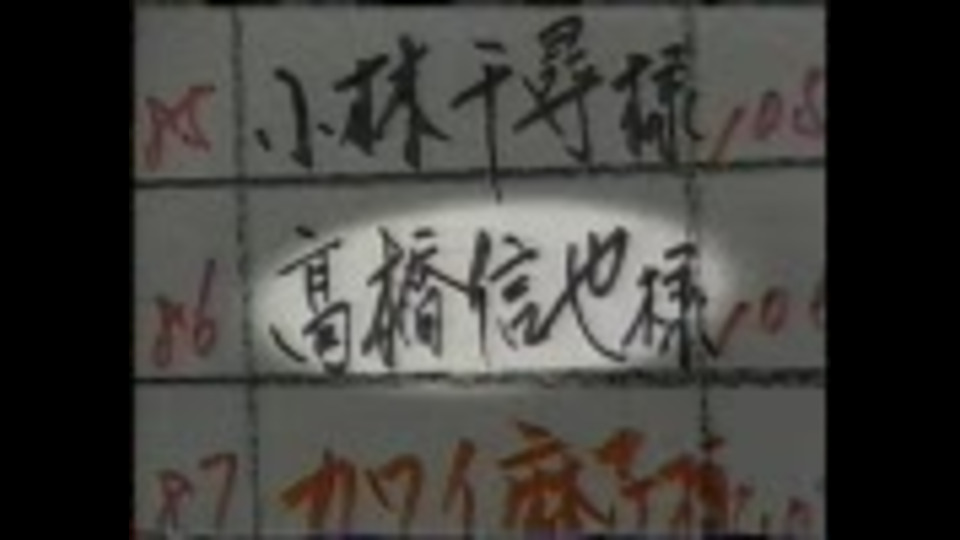 85 小林千尋様 108
86 高橋信也様
87 カワイ麻子様